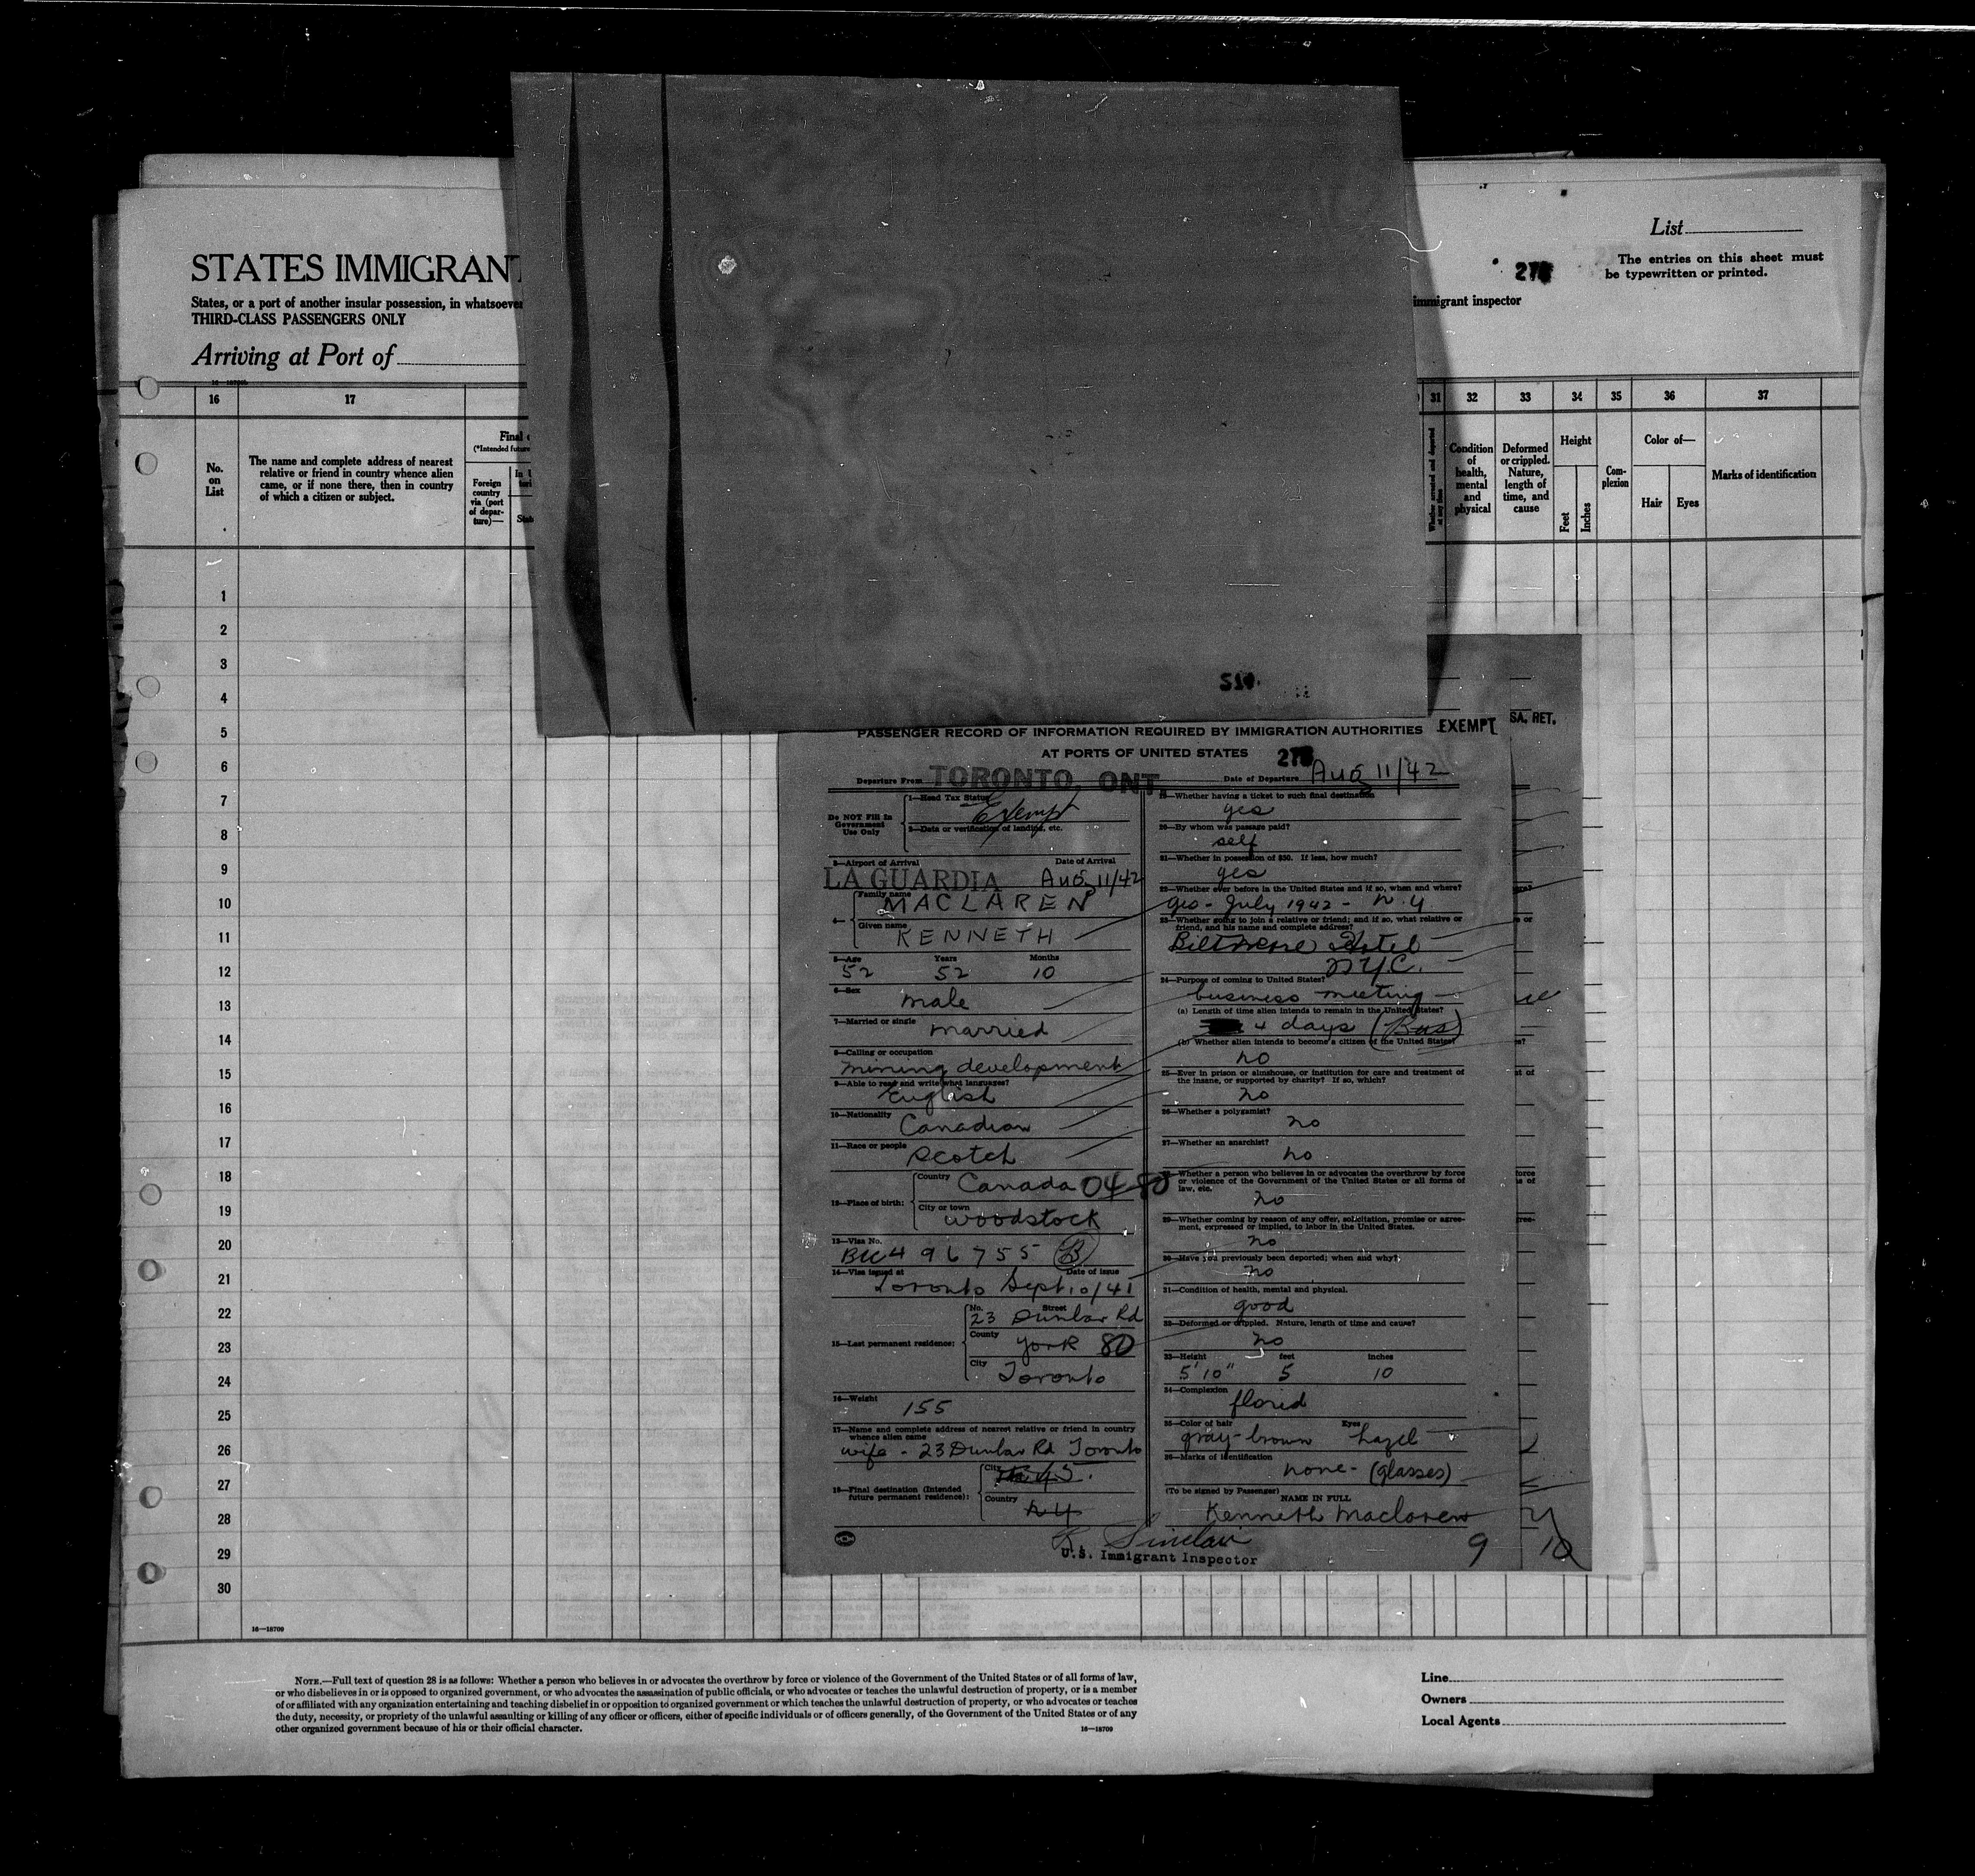 STATES IMMIGRANT
States, or a port of another insular possession, in whatsoever
THIRD-CLASS PASSENGERS ONLY
Arriving at Port of
List
The entries on this sheet must
be typewritten or printed.
immigrant inspector
16 17 31 32 33 34 35 36 37
No.
on
List
The name and complete address of nearest
relative or friend in country whence alien
came, or if none there, then in country
of which a citizen or subject.
Final
(*Intended future
Foreign
country
via (port
of depar-
ture)—
Whether arrested and deported
at any time
Condition
of
health,
mental
and
physical
Deformed
or crippled.
Nature,
length of
time, and
cause
Height
Feet
Inches
Com-
plexion
Color of—
Hair
Eyes
Marks of identification
1
2
3
4
5
6
7
8
9
10
11
12
13
14
15
16
17
18
19
20
21
22
23
24
25
26
27
28
29
30
16—18709
PASSENGER RECORD OF INFORMATION REQUIRED BY IMMIGRATION AUTHORITIES
EXEMPT
SA. RET.
AT PORTS OF UNITED STATES
Departure From TORONTO, ONT.
Date of Departure Aug 11/42
Do NOT Fill In
Government
Use Only
1—Head Tax Status
Exempt
2—Data or verification of landing, etc.
3—Airport of Arrival Date of Arrival
LA GUARDIA Aug 11/42
4—
Family name
MACLAREN
Given name
KENNETH
5—Age Years Months
52 52 10
6—Sex
male
7—Married or single
married
8—Calling or occupation
mining development
9—Able to read and write what languages?
English
10—Nationality
Canadian
11—Race or people
Scotch
12—Place of birth:
Country
Canada 04-80
City or town
Woodstock
13—Visa No.
496755 B
14—Visa issued at Date of issue
Toronto Sept 10/41
15—Last permanent residence:
No. Street
23 Dunbar Rd
County
York 80
City
Toronto
16—Weight
155
17—Name and complete address of nearest relative or friend in country
whence alien came
wife - 23 Dunbar Rd Toronto
18—Final destination (Intended
future permanent residence):
City
Country
19—Whether having a ticket to such final destination
yes
20—By whom was passage paid?
self
21—Whether in possession of $50. If less, how much?
yes
22—Whether ever before in the United States and if so, when and where?
yes - July 1942 - N.Y.
23—Whether going to join a relative or friend; and if so, what relative or
friend, and his name and complete address?
Biltmore Hotel
NYC.
24—Purpose of coming to United States?
business meeting
(a) Length of time alien intends to remain in the United States?
4 days (Bus)
(b) Whether alien intends to become a citizen of the United States?
no
25—Ever in prison or almshouse, or institution for care and treatment of
the insane, or supported by charity? If so, which?
no
26—Whether a polygamist?
no
27—Whether an anarchist?
no
28—Whether a person who believes in or advocates the overthrow by force
or violence of the Government of the United States or all forms of
law, etc.
no
29—Whether coming by reason of any offer, solicitation, promise or agree-
ment, expressed or implied, to labor in the United States.
no
30—Have you previously been deported; when and why?
no
31—Condition of health, mental and physical.
good
32—Deformed or crippled. Nature, length of time and cause?
no
33—Height feet inches
5'10" 5 10
34—Complexion
florid
35—Color of hair Eyes
gray-brown hazel
36—Marks of identification
none - (glasses)
(To be signed by Passenger)
NAME IN FULL
Kenneth Maclaren
R. Sinclair
U.S. Immigrant Inspector
9 10
NOTE.—Full text of question 28 is as follows: Whether a person who believes in or advocates the overthrow by force or violence of the Government of the United States or of all forms of law,
or who disbelieves in or is opposed to organized government, or who advocates the assassination of public officials, or who advocates or teaches the unlawful destruction of property, or is a member
of or affiliated with any organization entertaining and teaching disbelief in or opposition to organized government or which teaches the unlawful destruction of property, or who advocates or teaches
the duty, necessity, or propriety of the unlawful assaulting or killing of any officer or officers, either of specific individuals or of officers generally, of the Government of the United States or of any
other organized government because of his or their official character.
16—18709
Line
Owners
Local Agents